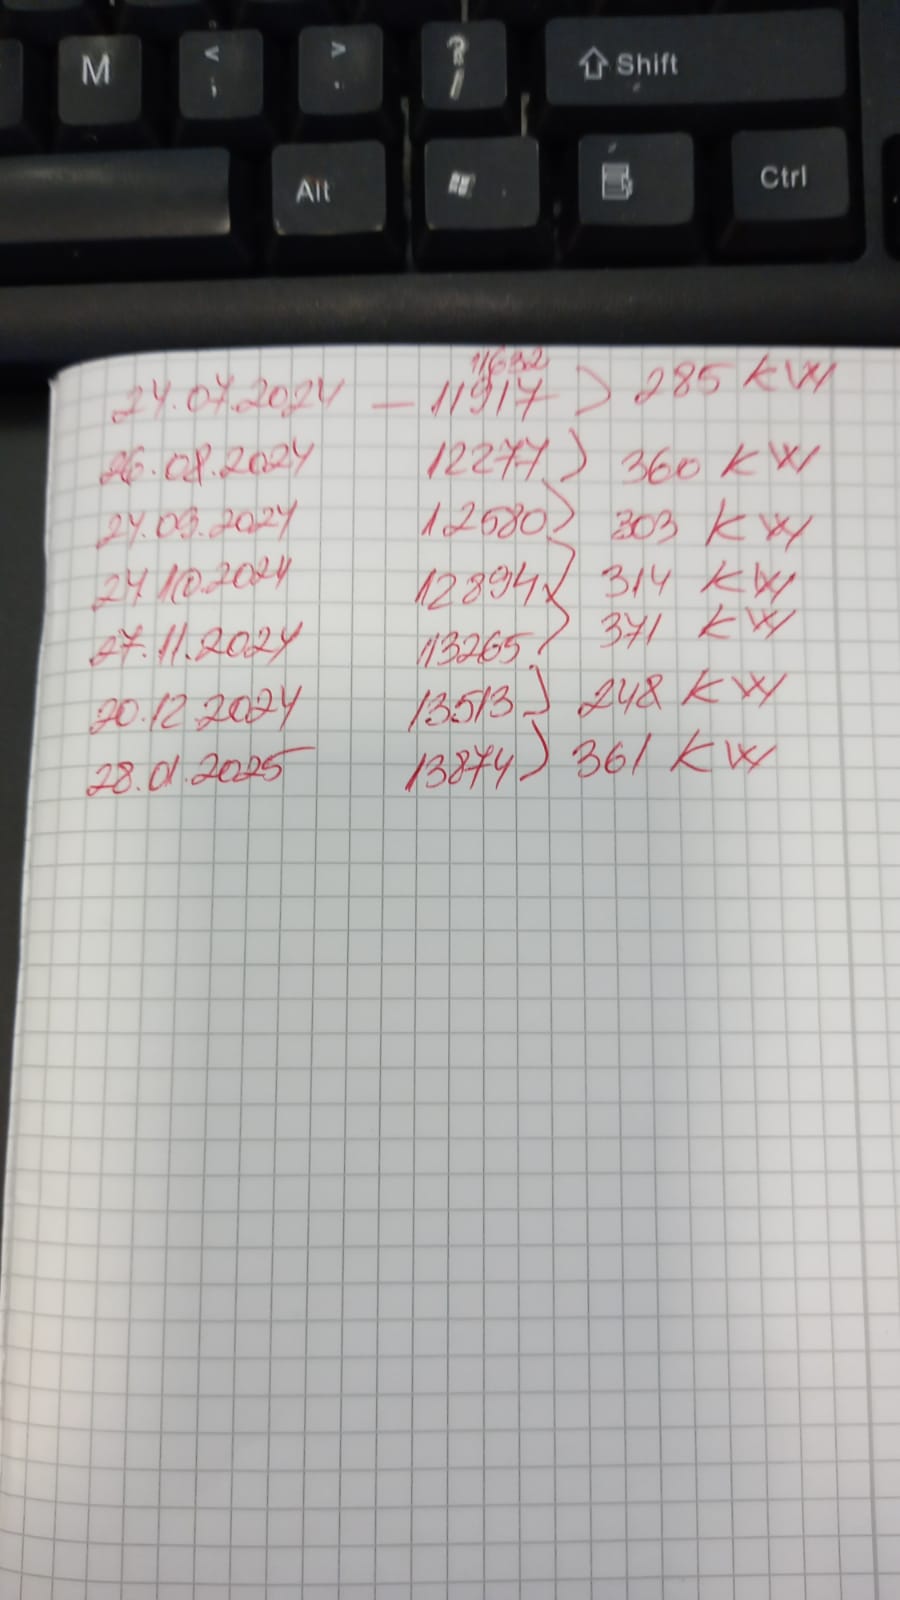 M < ; > . ? / Shift
Alt Ctrl
11632
24.07.2024 — 11917 > 285 KW
26.08.2024 12277 > 360 KW
24.09.2024 12580 > 303 KW
24.10.2024 12894 > 314 KW
27.11.2024 13265 > 371 KW
20.12.2024 13513 > 248 KW
28.01.2025 13874 > 361 KW